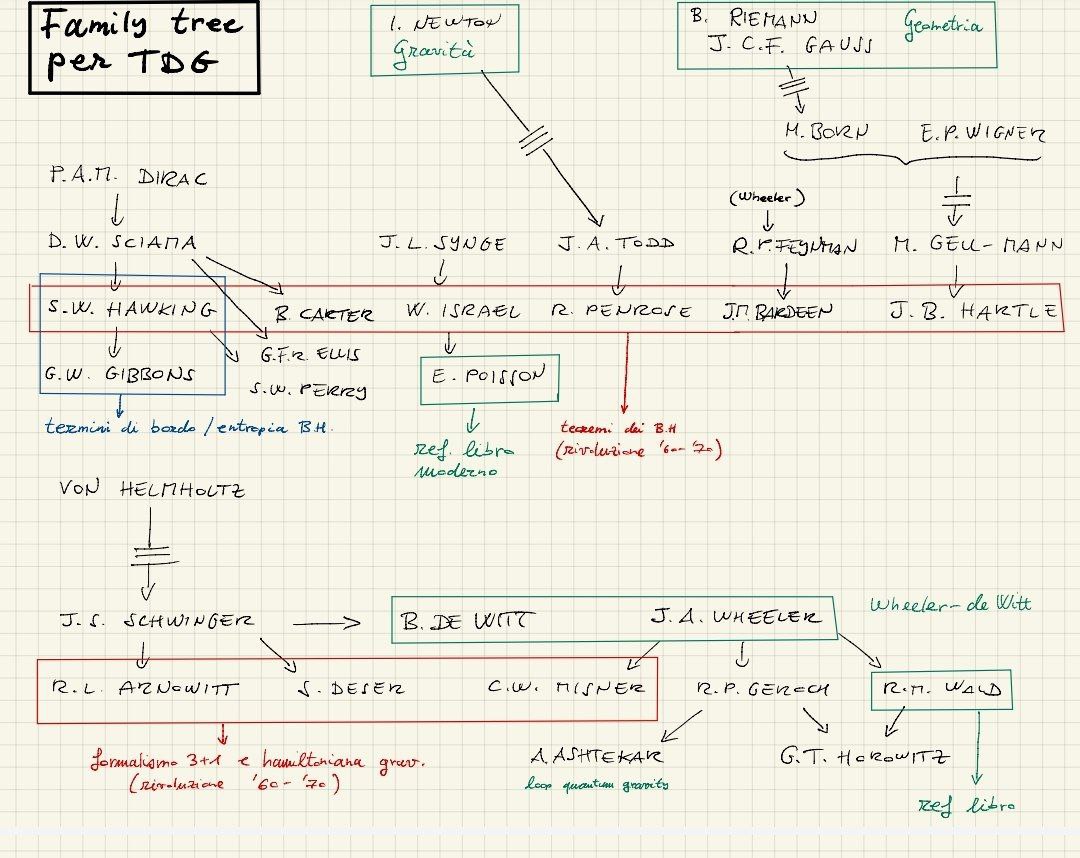 Family tree
per TDG
I. NEWTON
Gravità
B. RIEMANN
J. C. F. GAUSS
Geometria
M. BORN
E. P. WIGNER
P. A. M. DIRAC
(Wheeler)
D. W. SCIAMA
J. L. SYNGE
J. A. TODD
R. P. FEYNMAN
M. GELL-MANN
S. W. HAWKING
B. CARTER
W. ISRAEL
R. PENROSE
J. M. BARDEEN
J. B. HARTLE
G. F. R. ELLIS
G. W. GIBBONS
S. W. PERRY
E. POISSON
termini di bordo / entropia B.H.
ref. libro
moderno
teoremi dei B.H
(rivoluzione '60-'70)
VON HELMHOLTZ
J. S. SCHWINGER
B. DE WITT
J. A. WHEELER
Wheeler-de Witt
R. L. ARNOWITT
S. DESER
C. W. MISNER
R. P. GEROCH
R. M. WALD
formalismo 3+1 e hamiltoniana grav.
(rivoluzione '60-'70)
A. ASHTEKAR
loop quantum gravity
G. T. HOROWITZ
ref libro